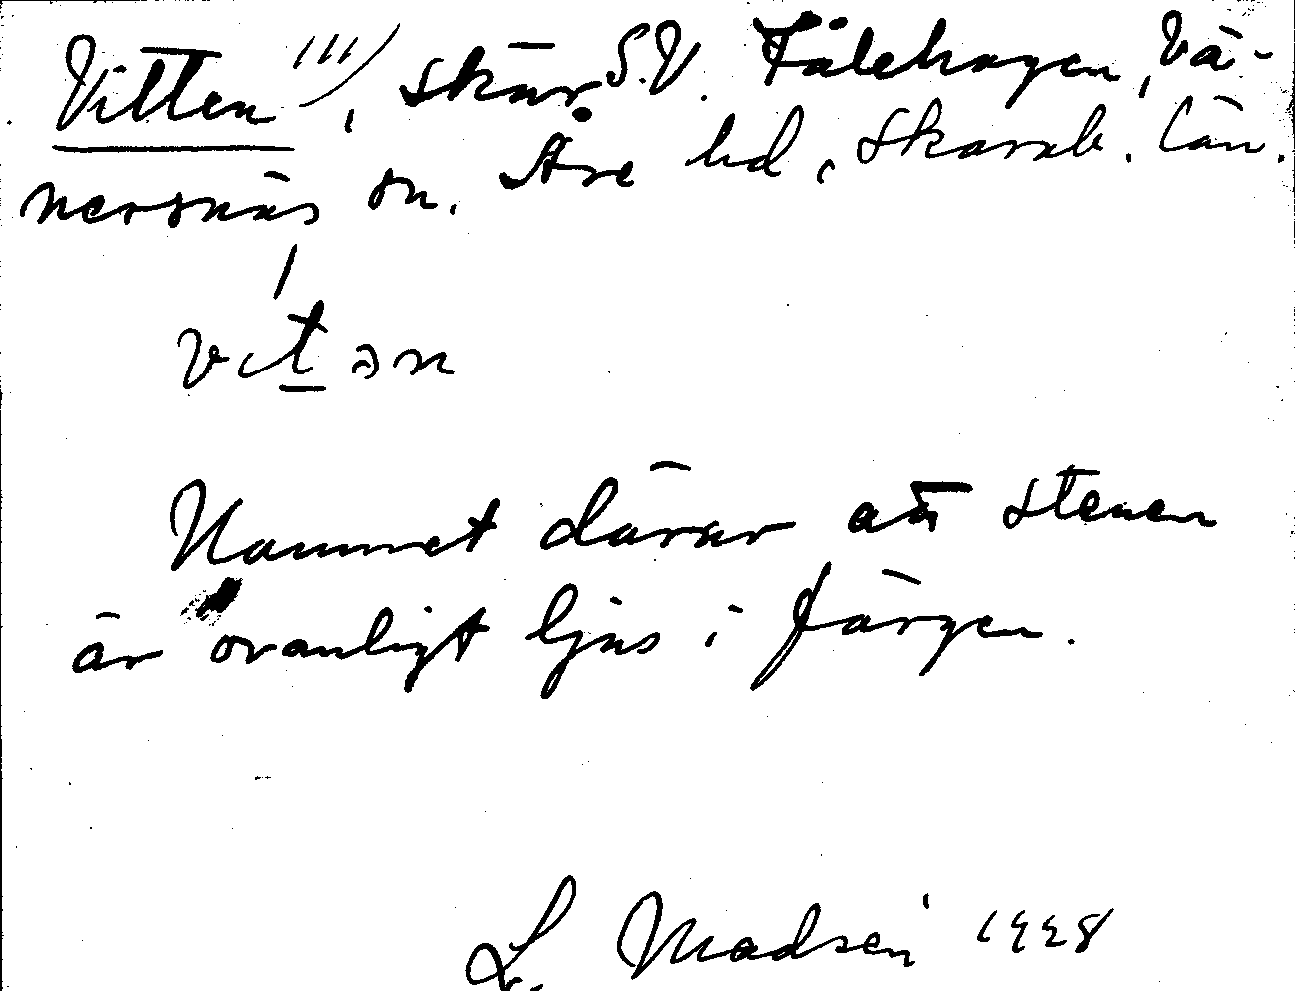 Vitten 111), skär S.V. Fålehagen, Vä-
nersnäs sn. Åse hd, Skarab. län.
vitən
Namnet därav att stenen
är ovanligt ljus i färgen.
L. Madsén 1928